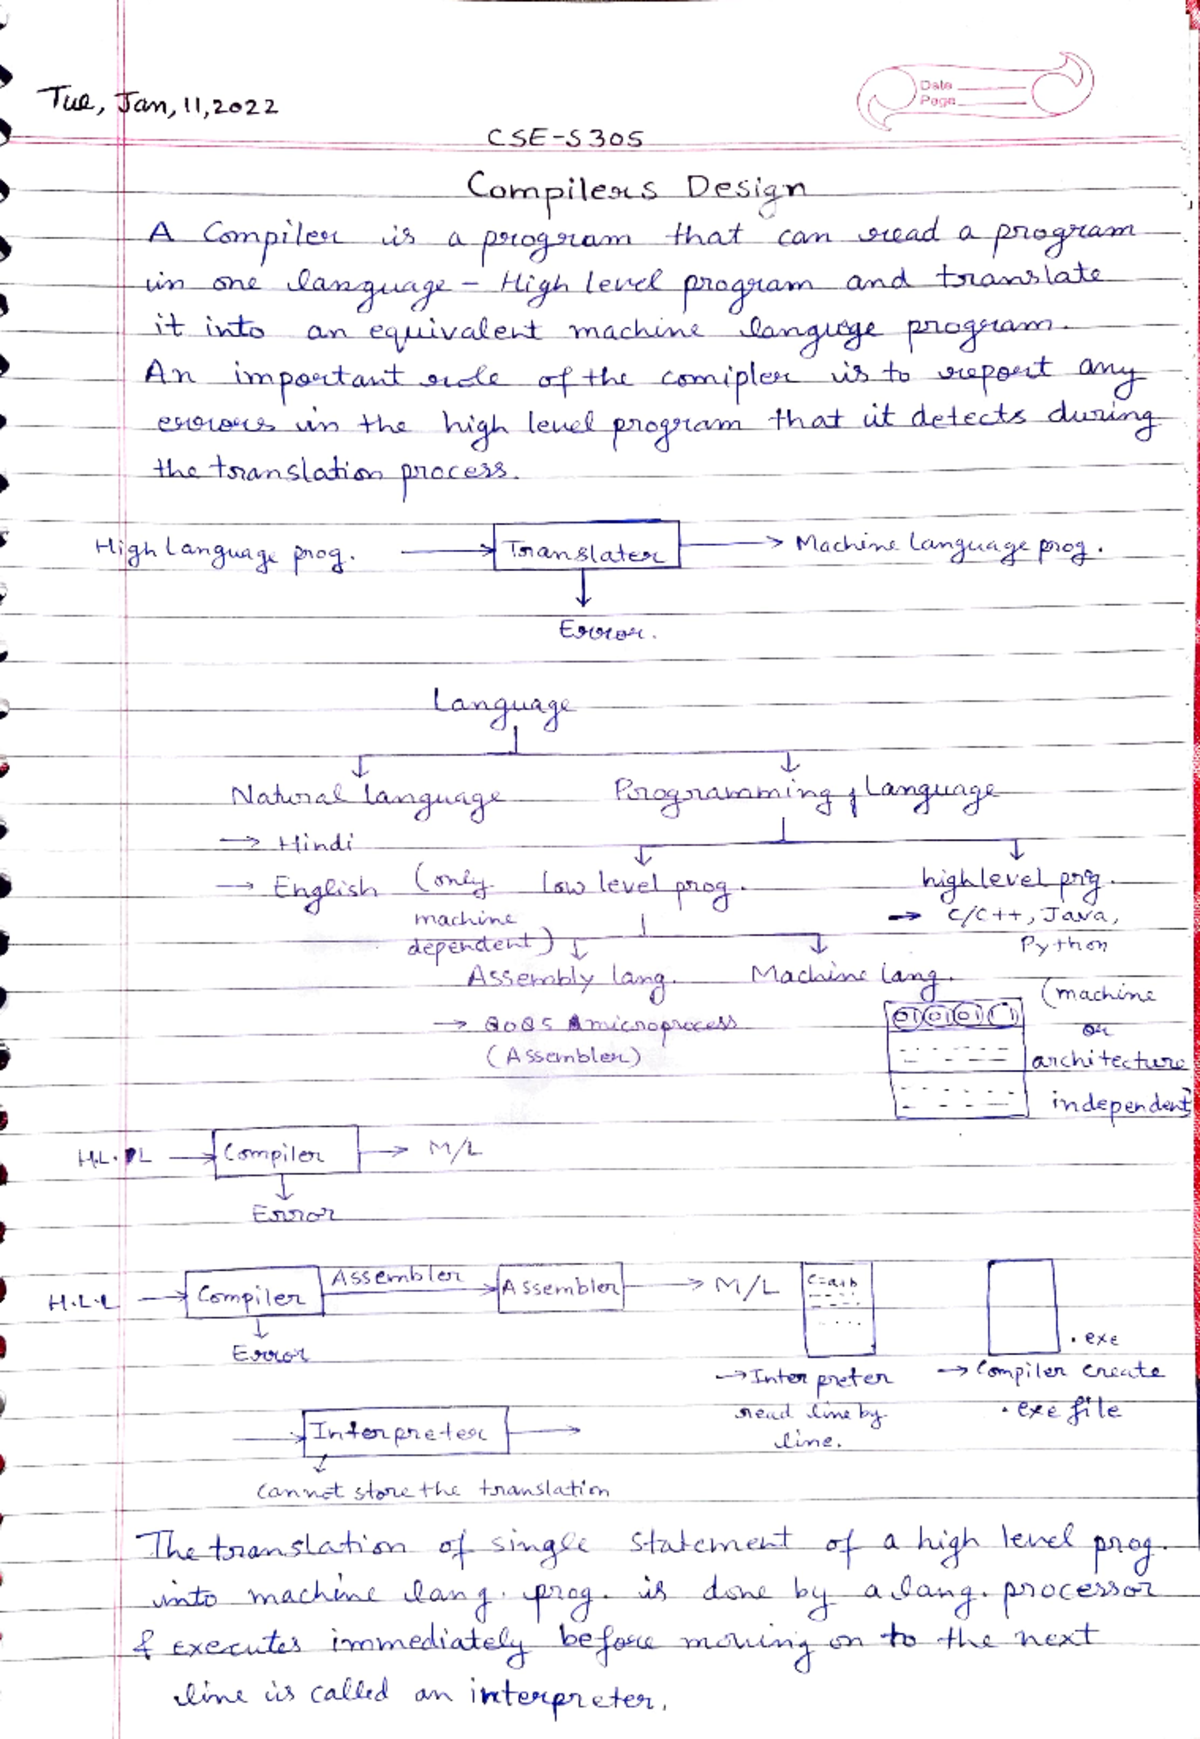 Tue, Jan, 11, 2022
Date
Page
CSE-S305
Compilers Design
A Compiler is a program that can read a program
in one language - High level program and translate
it into an equivalent machine languge program.
An important role of the comipler is to report any
errors in the high level program that it detects during
the translation process.
High Language prog. → Translater → Machine Language prog.
Error.
Language
Natural language Programming Language
→ Hindi
→ English (only low level prog. high level prg.
machine → C/C++, Java,
dependent) Python
Assembly lang. Machine lang.
(machine
→ 8085 microprocess 01010101 or
(Assembler) architecture
independent)
H.L.L → Compiler → M/L
Error
H.L.L → Compiler Assembler → Assembler → M/L C=a+b
Error .exe
→ Interpreter → Compiler create
read line by .exe file
line.
→ Interpreter →
cannot store the translation
The translation of single statement of a high level prog.
into machine lang. prog. is done by a lang. processor
& executes immediately before moving on to the next
line is called an interpreter.